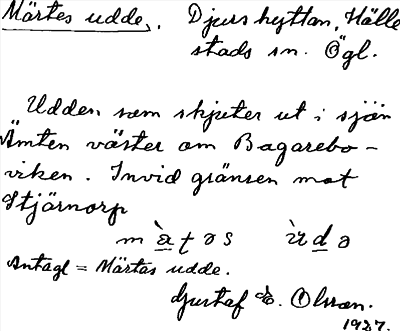 Märtes udde. Djurshyttan, Hälle
stads sn. Ögl.
Udden som skjuter ut i sjön
Ämten väster om Bagarebo-
viken. Invid gränsen mot
Stjärnorp
m à ț ə s ùdə
Antagl = Märtas udde.
Gustaf E. Olsson.
1927.